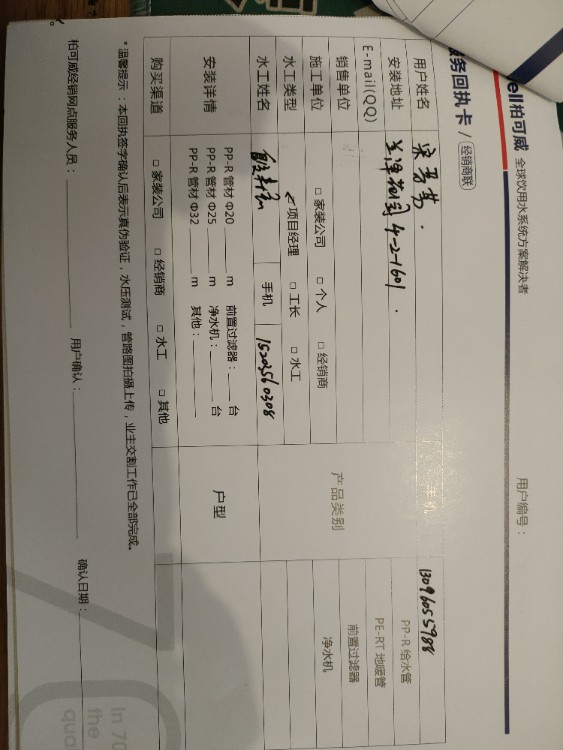 ell柏可威 全球饮用水系统方案解决者
服务回执卡 / 经销商联
用户编号：
用户姓名
手机 13096055988
安装地址 4-2-1601
E-mail(QQ)
销售单位
施工单位 □ 家装公司 □ 个人 □ 经销商
水工类型 项目经理 □ 工长 □ 水工
水工姓名 手机
产品类别
PP-R 给水管
PE-RT 地暖管
前置过滤器
净水机
安装详情
PP-R 管材 Φ20 m 前置过滤器： 台
PP-R 管材 Φ25 m 净水机： 台
PP-R 管材 Φ32 m 其他：
户型
购买渠道 □ 家装公司 □ 经销商 □ 水工 □ 其他
*温馨提示：本回执签字确认后表示真伪验证，水压测试，管路图拍摄上传，业主交割工作已全部完成。
柏可威经销网点服务人员： 用户确认： 确认日期：
In 70
the
qua